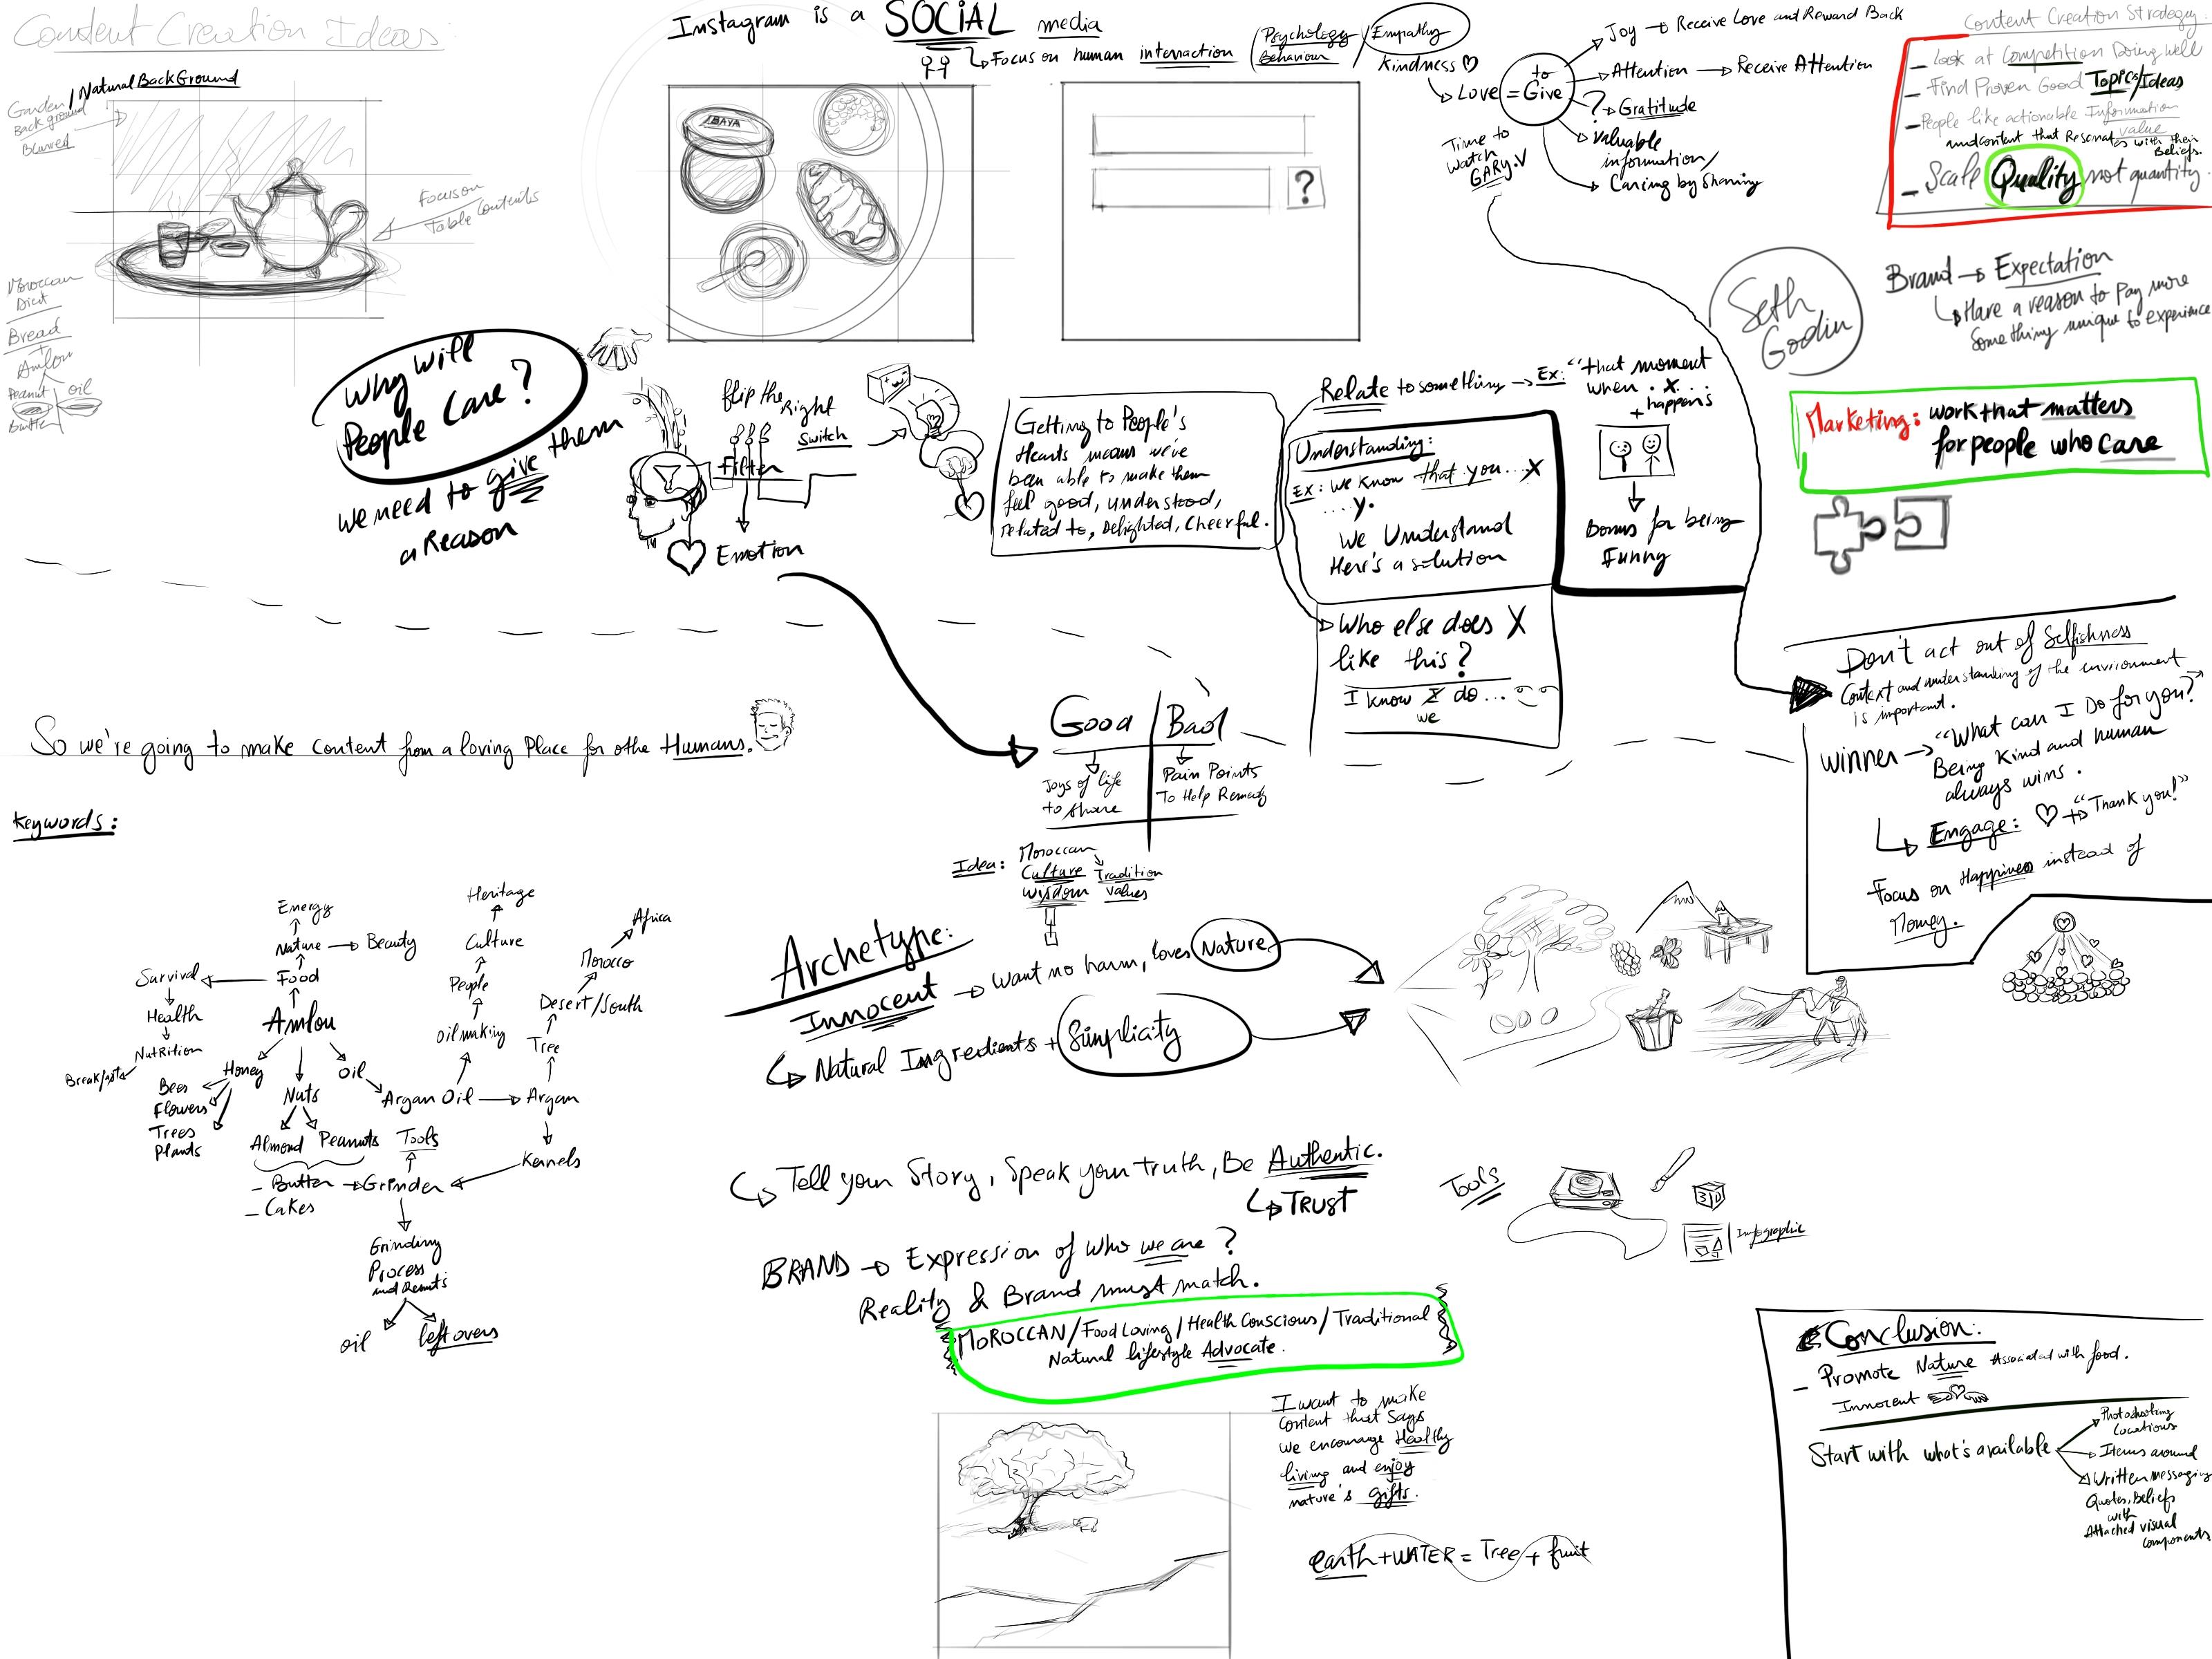 Content Creation Ideas:
Garden / Natural BackGround
Back ground
Blurred
Focus on
Table Contents
Moroccan
Diet
Bread
+
Amlou
Peanut
oil
Butter
Instagram is a SOCIAL media
Focus on human interaction (Psychology / Empathy
Behaviour
Kindness
IBAYA
?
Love = to Give
Joy → Receive Love and Reward Back
Attention → Receive Attention
? Gratitude
Valuable
information /
Caring by Sharing
Time to
Watch
GARY.V
Content Creation Strategy:
- Look at Competition Doing well
- Find Proven Good Topics/Ideas
- People like actionable Information
value
and content that Resonates with their
Beliefs.
- Scale Quality not quantity.
Seth
Godin
Brand → Expectation
Have a reason to Pay more
Something unique to experience
Marketing: work that matters
for people who care
Why will
People Care?
we need to give them
a Reason
flip the Right
Switch
Filter
Emotion
Getting to People's
Hearts means we've
been able to make them
feel good, understood,
related to, Delighted, Cheerful.
Relate to something → Ex: "that moment
when . X . . .
+ happens
Bonus for being
Funny
Understanding:
Ex: we know that you... X
.... y.
we Understand
Here's a solution
Who else does X
like this?
I know X do...
we
Don't act out of Selfishness
Context and understanding of the environment
is important.
Winner → "What can I Do for you?"
Being Kind and human
always wins.
Engage: ♡ + "Thank you!"
Focus on Happiness instead of
Money.
So we're going to make content from a loving Place for othe Humans.
Good / Bad
Joys of life
to share
Pain Points
To Help Remedy
Idea: Moroccan
Culture Tradition
Wisdom Values
Keywords:
Heritage
Energy
Africa
Nature → Beauty
Culture
Morocco
Survival
Food
People
Desert/South
Health
Amlou
Oil making
Tree
Nutrition
Breakfast
Honey
Oil
Bees
Flowers
Trees
Plants
Nuts
Argan Oil → Argan
Almond Peanuts
Tools
Kernels
- Butter → Grinder
- Cakes
Grinding
Process
and Results
oil
leftovers
Archetype:
Innocent → Want no harm, loves Nature
Natural Ingredients + Simplicity
Tell your Story, Speak your truth, Be Authentic.
TRUST
Tools
3D
Infographic
BRAND → Expression of Who we are?
Reality & Brand must match.
MOROCCAN/Food Loving/Health Conscious/Traditional
Natural lifestyle Advocate.
I want to make
content that says
we encourage Healthy
living and enjoy
nature's gifts.
earth + WATER = Tree + fruit
Conclusion:
- Promote Nature Associated with food.
Innocent
Start with what's available
Photoshooting
Locations
Items around
Written messaging
Quotes, Beliefs
with
Attached visual
components